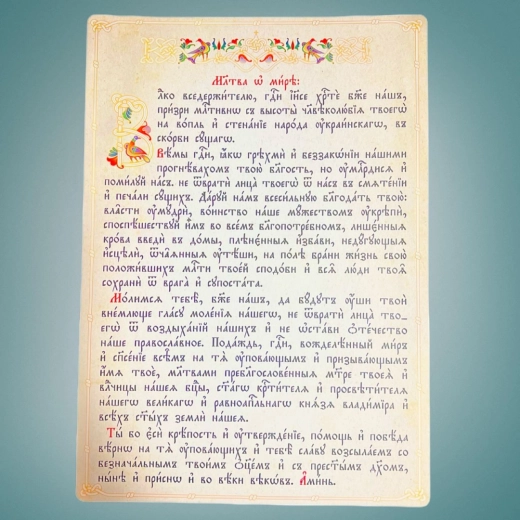 Мл҃тва ѡ҆ ми́рѣ:
лⷣко вседержи́телю, гдⷭ҇и і҆и҃се хрⷭ҇тѐ бж҃е на́шъ,
при́зри млⷭ҇тивнѡ съ высоты̀ чл҃вѣколю́бїѧ твоегѡ̀
на во́пль и҆ стена́нїе наро́да ѹ҆краи́нскагѡ, въ
ско́рби сꙋ́щагѡ.
Вѣ́мы гдⷭ҇и, ꙗ҆́кѡ грѣхмѝ и҆ беззако́нїи на́шими
прогнѣ́вахомъ твою̀ бл҃гость, но ѹ҆млⷭ҇рдисѧ и҆
поми́лꙋй на́съ. не ѿвратѝ лица̀ твоегѡ̀ ѿ на́съ въ смѧте́нїи
и҆ печа́ли сꙋ́щихъ. Да́рꙋй на́мъ всеси́льнꙋю бл҃года́ть твою̀:
вла̑сти ѹ҆мꙋдрѝ, во́инство на́ше мꙋ́жествомъ ѹ҆крѣпѝ,
споспѣ́шествꙋй и҆̀мъ во все́мъ бл҃гопотре́бномъ, лише́нныѧ
кро́ва введѝ въ до́мы, плѣне́нныѧ и҆зба́ви, недꙋ́гꙋющыѧ
и҆сцѣлѝ, ѿча́ѧнныѧ ѹ҆тѣ́ши, на по́лѣ бра́ни жи́знь свою̀
положи́вшихъ млⷭ҇ти твое́й сподо́би и҆ всѧ̑ лю́ди твоѧ̑
сохранѝ ѿ врага̀ и҆ сꙋпоста́та.
Мо́лимсѧ тебѣ̀, бж҃е на́шъ, да бꙋ́дꙋтъ ѹ҆́ши твоѝ
вне́млюще гла́сꙋ моле́нїѧ на́шегѡ, не ѿвратѝ лица̀ тво_
егѡ̀ ѿ воздыха́нїй на́шихъ и҆ не ѡ҆ста́ви ѻ҆те́чество
на́ше правосла́вное. Пода́ждь, гдⷭ҇и, вожделѣ́нный ми́ръ
и҆ спⷭ҇е́нїе всѣ̑мъ на тѧ̀ ѹ҆пова́ющымъ и҆ призыва́ющымъ
и҆́мѧ твоѐ, мл҃твами пребл҃гослове́нныѧ мт҃ре твоеѧ̀ и҆
влⷣчицы на́шеѧ бцⷣы, ст҃а́гѡ крⷭ҇ти́телѧ и҆ просвѣти́телѧ
на́шегѡ вели́кагѡ и҆ равноапⷭ҇льнагѡ кнѧ́зѧ влади́міра и҆
всѣ́хъ ст҃ы́хъ землѝ на́шеѧ.
Ты́ бо є҆сѝ крѣ́пость и҆ ѹ҆твержде́нїе, по́мощь и҆ побѣ́да
вѣ́рнѡ на тѧ̀ ѹ҆пова́ющихъ и҆ тебѣ̀ сла́вꙋ возсыла́емъ со
безнача́льнымъ твои́мъ ѻ҆ц҃е́мъ и҆ съ прест҃ы́мъ дх҃омъ,
ны́нѣ и҆ при́снѡ и҆ во вѣ́ки вѣкѡ́въ. А҆ми́нь.